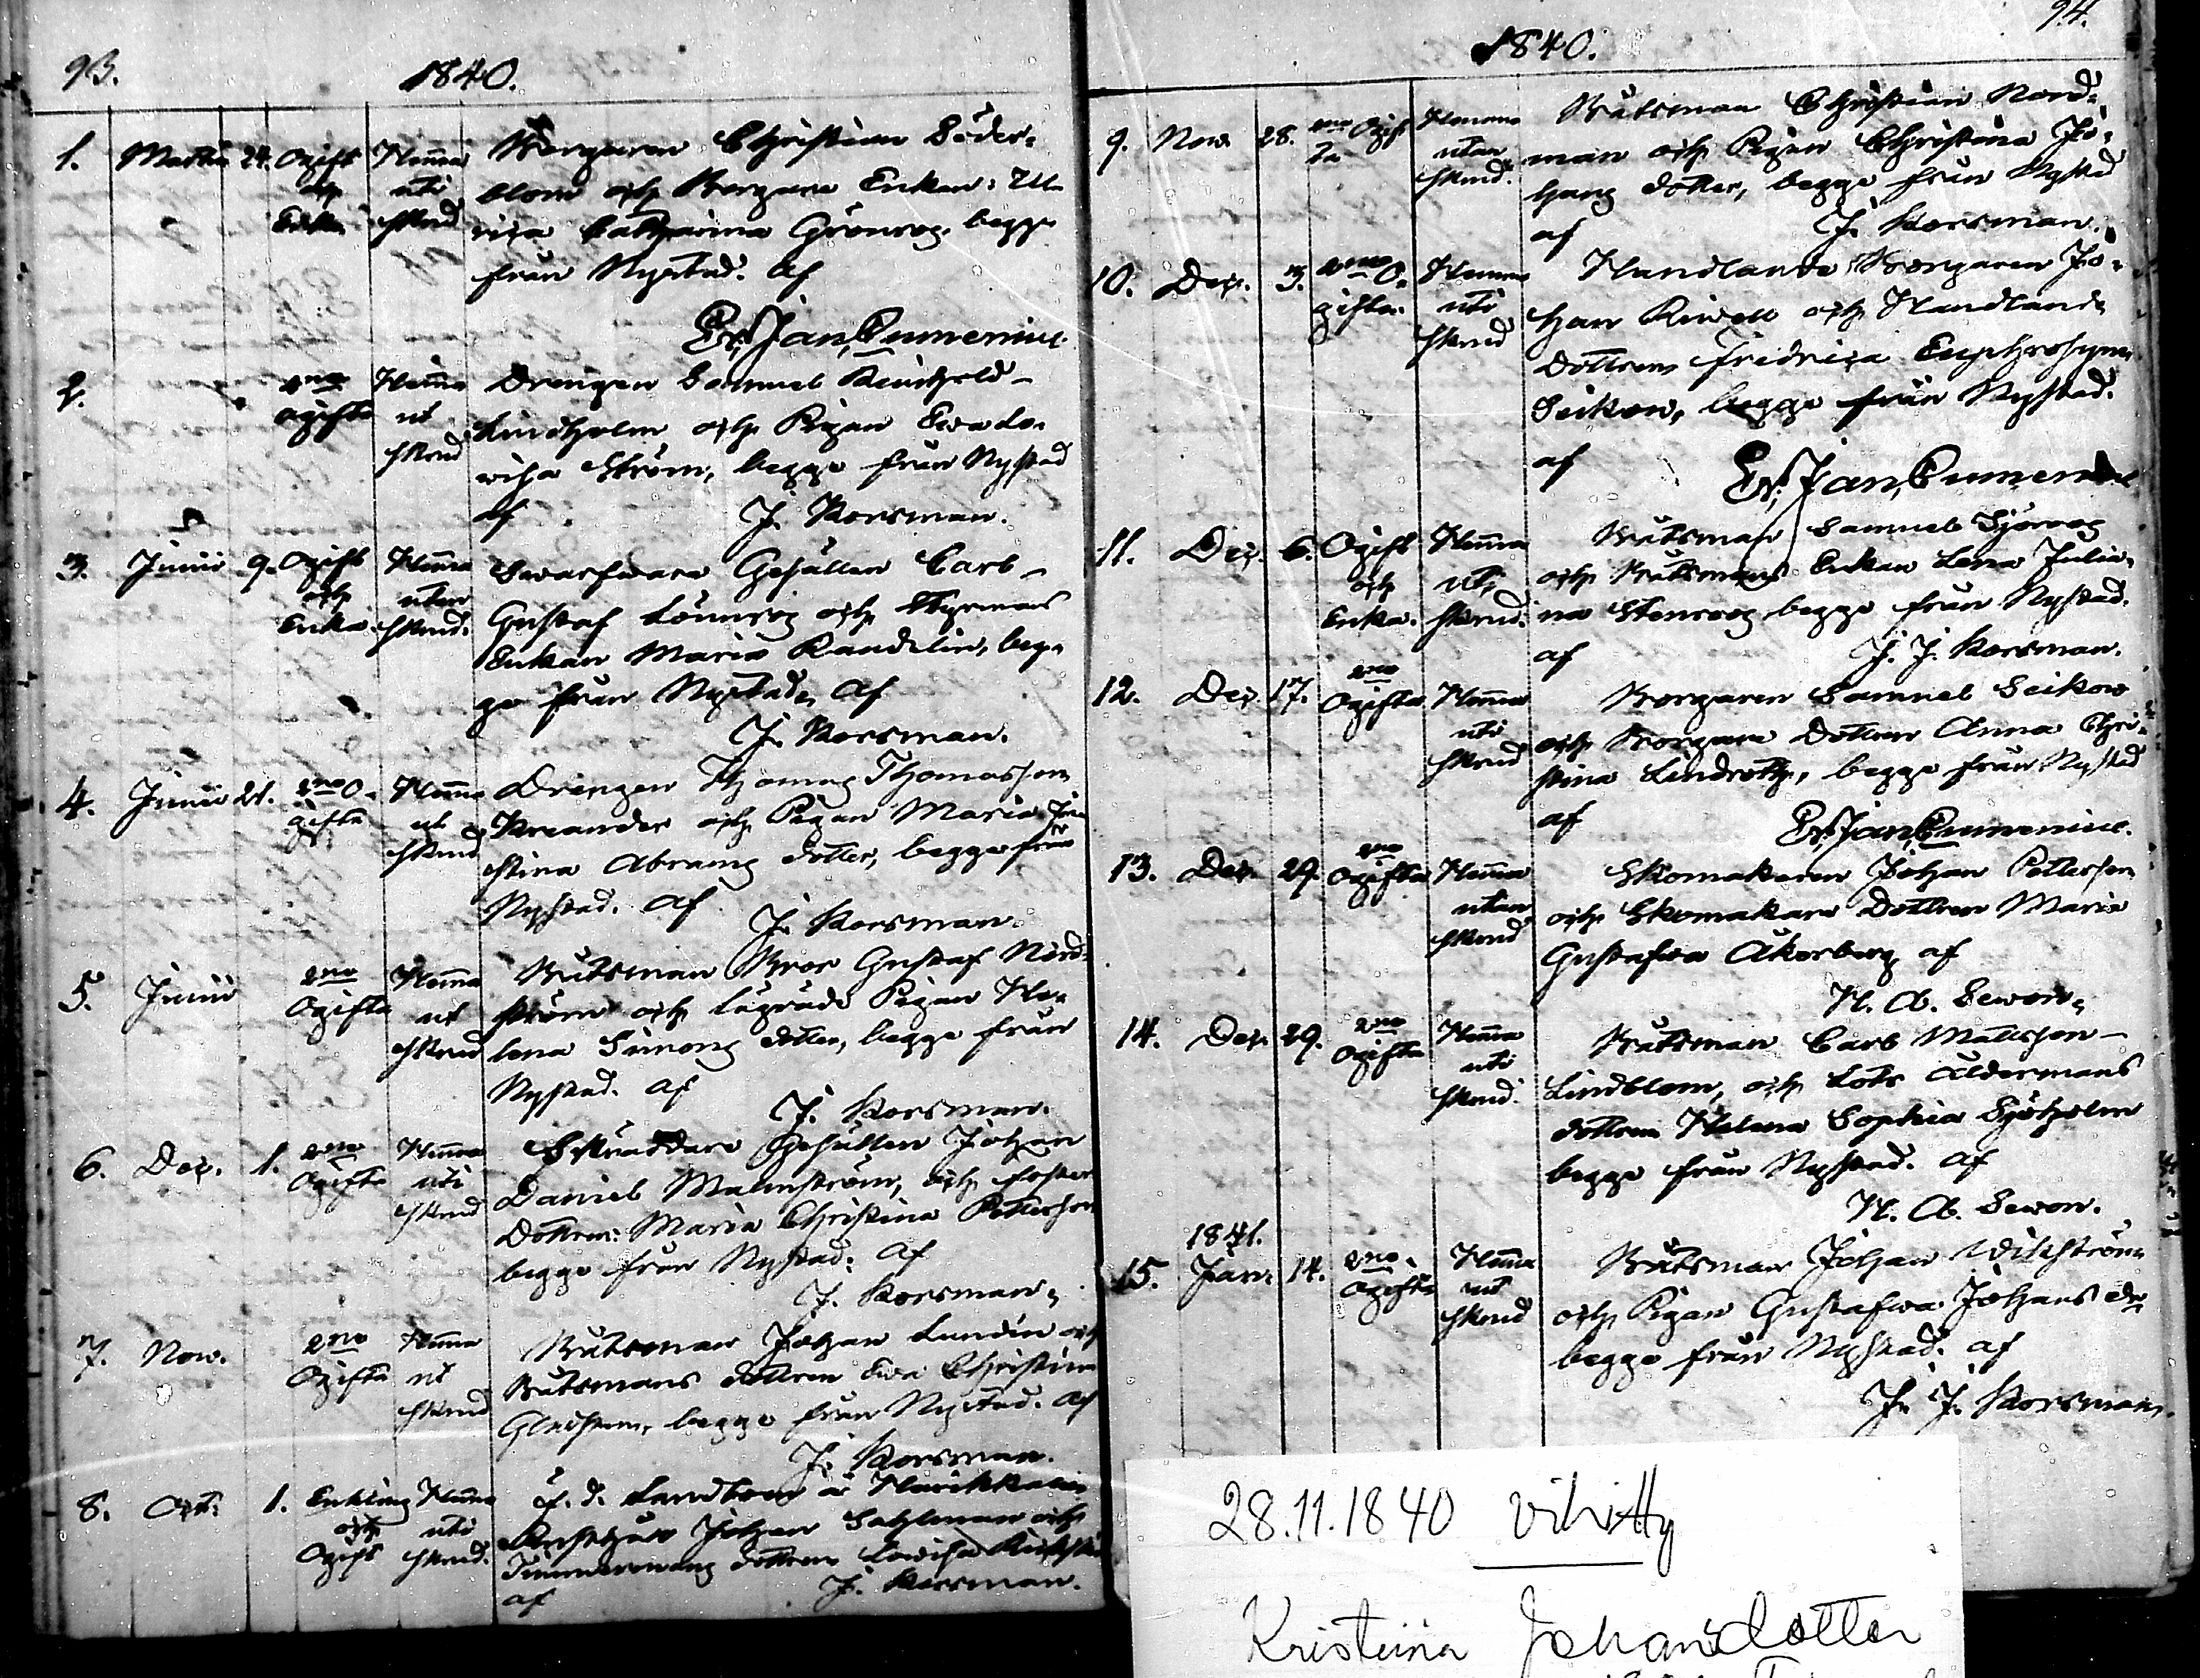 93.
1840.
1. Martii 24. Ogift och Enka Hemma uti skrud
Borgaren Christian Söder-
blom och Borgare Enkan: Ul-
rica Catharina Grönroos, begge
från Nystad. af
Er. Jan. Cumenius.
2. 2ne ogifte Hemma ut skrud
Drengen Samuel
Lindholm och Pigan Ewa Lo-
wisa Ström, begge från Nystad
af J. Korsman.
3. Junii 9. Ogift och Enka Hemma utan skrud.
Swarfware Gesällen Carl
Gustaf Lönnroos och Styrmans
Enkan Maria Randelin, beg-
ge från Nystad, af
J. Korsman.
4. Junii 21. 2ne O- gifta Hemma ut skrud
Drengen Thomas Thomasson
och Pigan Maria Chri-
stina Abrams dotter, begge från
Nystad. af
J. Korsman.
5. Junii 2ne Ogifta Hemma ut skrud
Båtsman Gustaf Nord-
ström och Pigan He-
lena Simons dotter, begge från
Nystad. af
J. Korsman.
6. Dec. 1. 2ne Ogifte Hemma uti skrud
Skräddare Gesällen Johan
Daniel Malmström, och foster
Dottren: Maria Christina Petterson
begge från Nystad: af
J. Korsman.
7. Nov. 2ne Ogifta Hemma ut skrud
Båtsman Johan Lundin och
Båtsmans dottren Ewa Christina
begge från Nystad. af
J. Korsman.
8. Oct: 1. Enkling och Ogift Hemma uti skrud.
f. d.
Johan Sahlman och
Timmermans dottren Lowisa
af J. Korsman.
94.
1840.
9. Nov. 28. 2ne Ogif- ta Hemma utan skrud.
Båtsman Christian Nord-
man och Pigan Christina Jo-
hans dotter, begge från Nystad
af J. Korsman.
10. Dec. 3. 2ne O- gifta. Hemma uti skrud
Handlande Borgaren Jo-
han och Handlande
Dottren Fredrica Euphrosyne
Seikow, begge från Nystad.
af Er. Jan. Cumenius
11. Dec. 6. Ogift och Enka. Hemma ut skrud.
Båtsman Samuel Sjöroos
och Båtsmans Enkan Lena Julia-
na Stenroos begge från Nystad.
af J. J. Korsman.
12. Dec. 17. 2ne Ogifta Hemma uti skrud
Borgaren Samuel Seikow
och Borgare Dottren Anna Chri-
stina Lindroth, begge från Nystad
af Er. Jan. Cumenius.
13. Dec. 29. 2ne Ogifta Hemma utan skrud
Skomakaren Johan Petterson
och Skomakare Dottren Maria
Gustafwa Åkerberg af
H. A. Sewon.
14. Dec. 29. 2ne Ogifta Hemma uti skrud.
Båtsman Carl Mattsson
Lindblom, och Lots Åldermans
dottren Helena Sophia Sjöholm
begge från Nystad. af
H. A. Sewon.
1841.
15. Jan: 14. 2ne Ogifta Hemma ut skrud
Båtsman Johan Wikström
och Pigan Gustafwa Johans dr
begge från Nystad: af
J. J. Korsman.
28.11.1840 vihitty
Kristiina Johansdotter